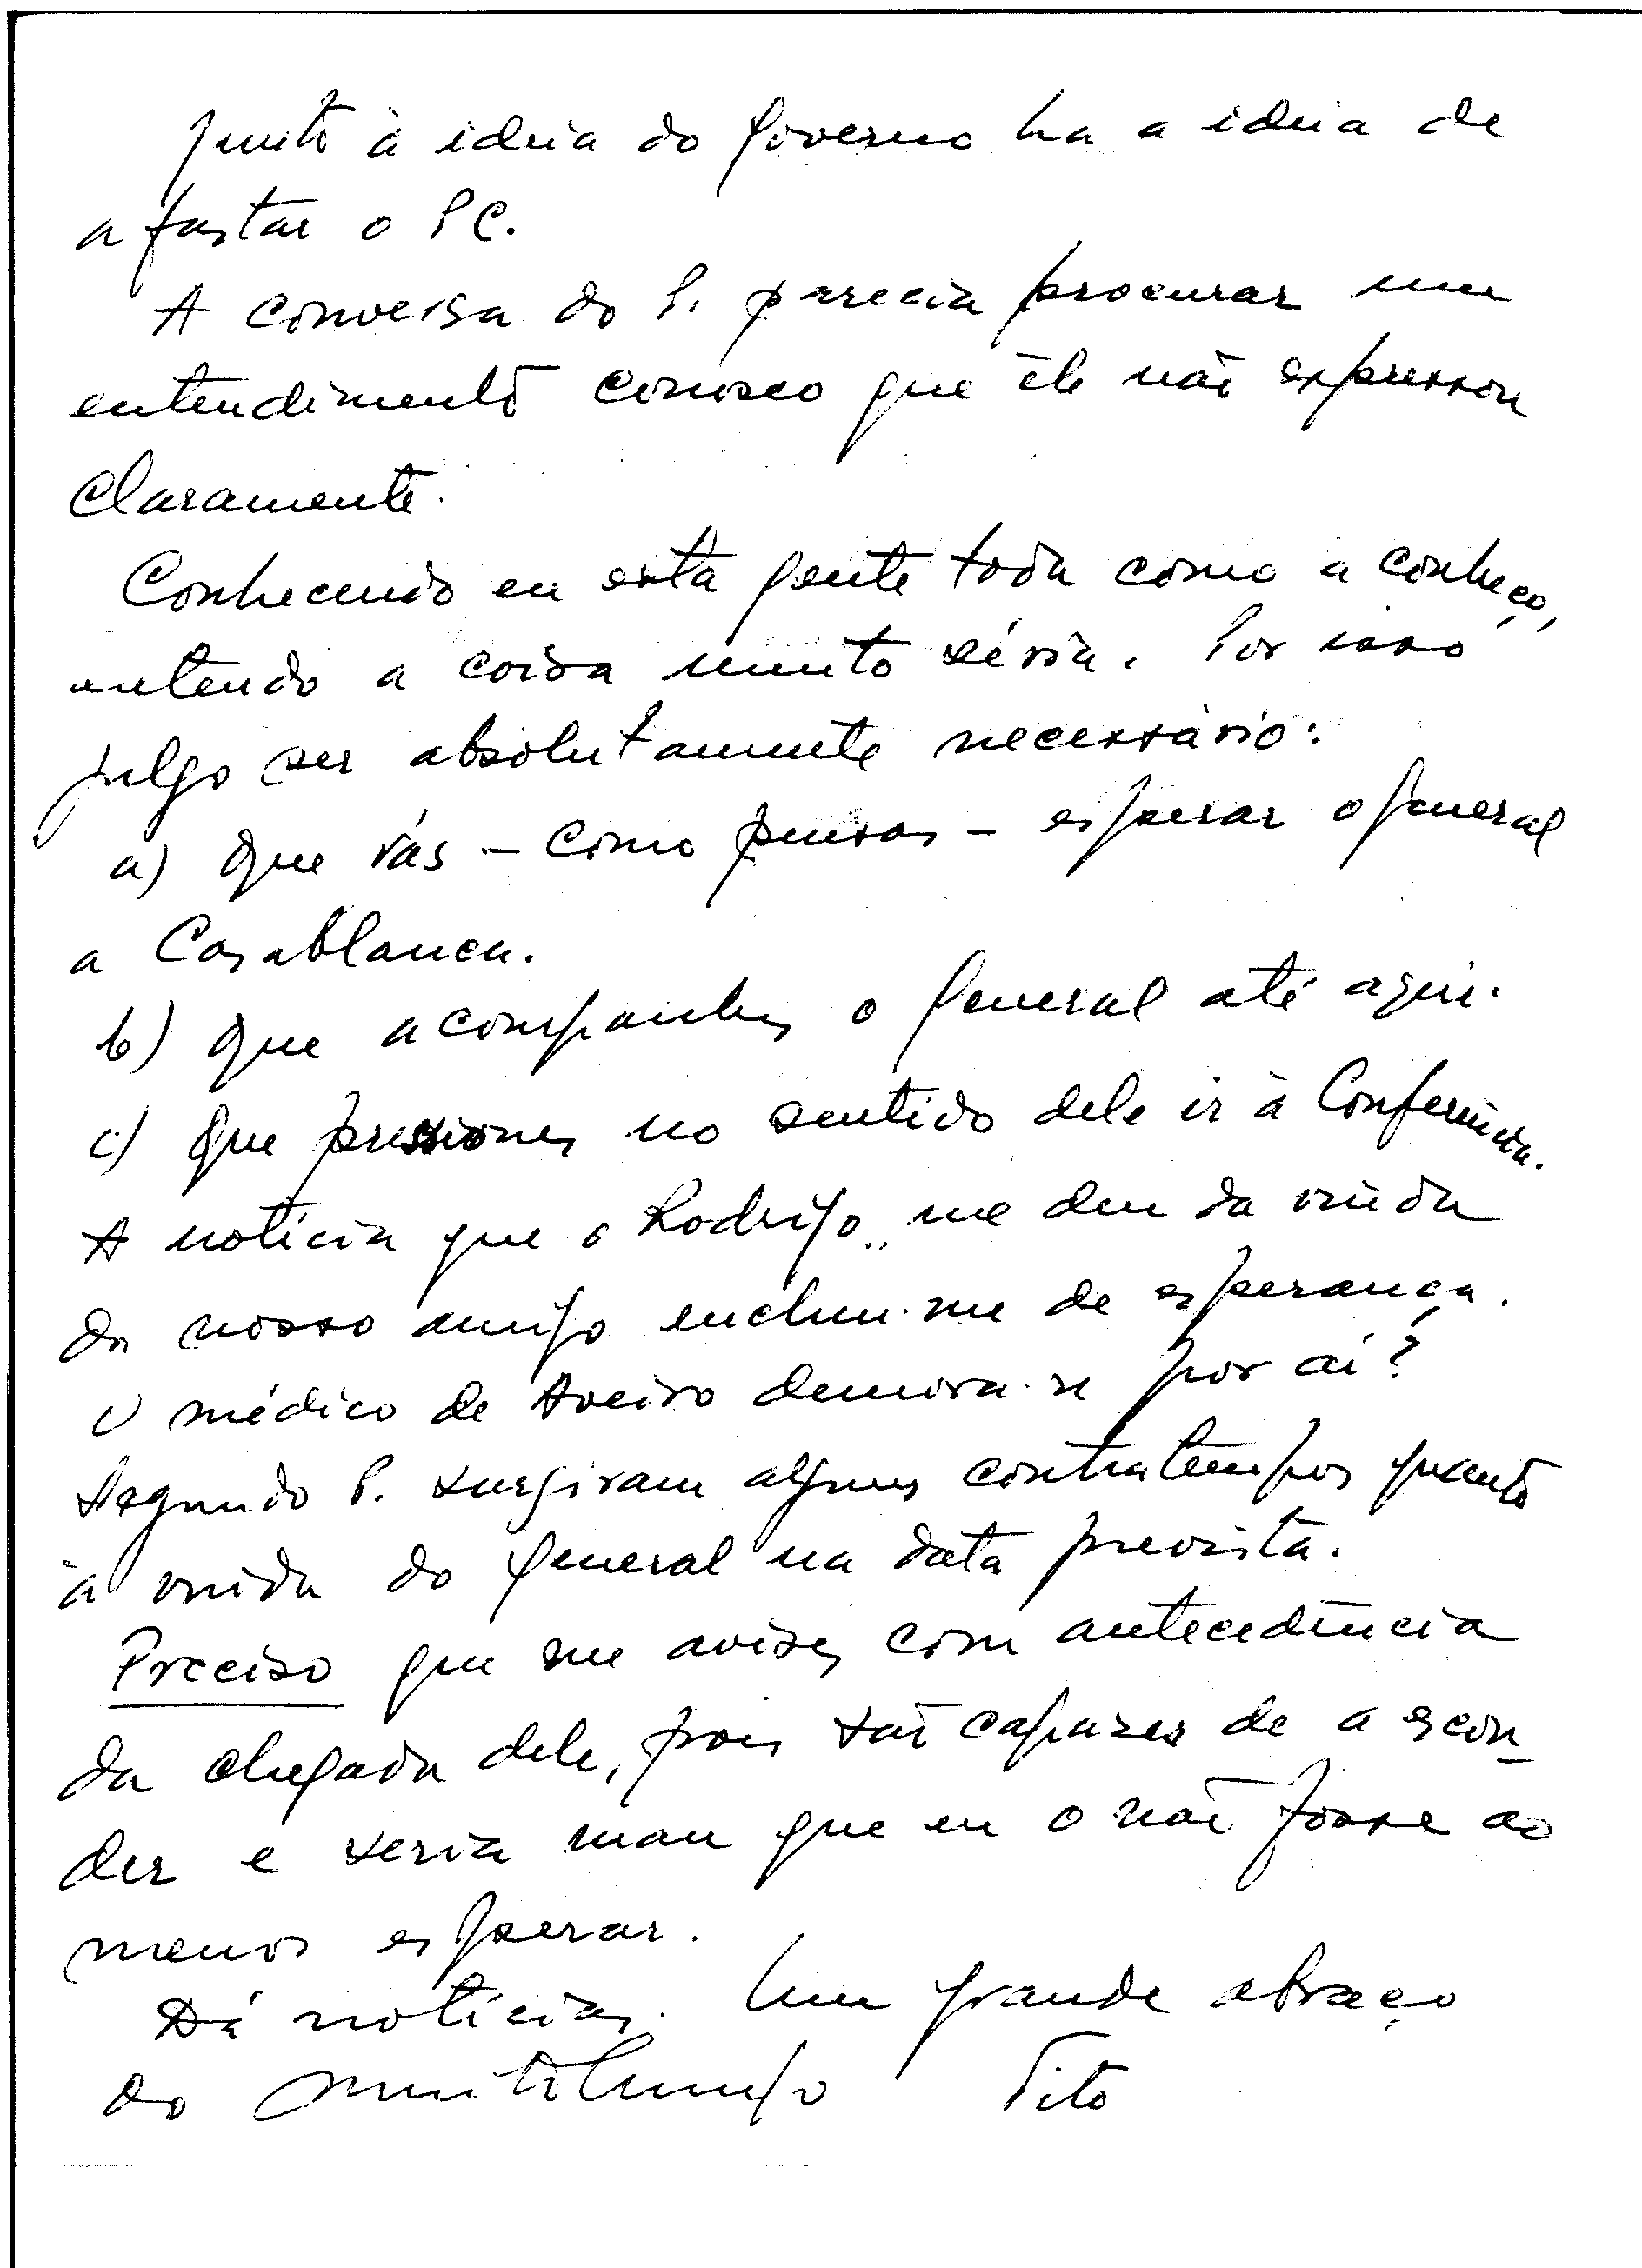 Junto à ideia do Governo ha a ideia de
afastar o PC.
A conversa do P. parecia procurar um
entendimento conosco que êle não expressou
claramente.
Conhecendo eu esta gente toda como a conheço,
entendo a coisa muito séria. Por isso
julgo ser absolutamente necessário:
a) Que vás - como pensas - esperar o general
a Casablanca.
b) Que acompanhes o general até aqui.
c) Que pressiones no sentido dele ir à Conferência.
A notícia que o Rodrigo me deu da vinda
do nosso amigo encheu-me de esperança.
O médico de Aveiro demora-se por aí?
Segundo P. surgiram alguns contratempos quanto
à vinda do general na data prevista.
Preciso que me avises com antecedência
da chegada dele, pois são capazes de a escon-
der e seria mau que eu o não fosse ao
menos esperar.
Dá notícias. Um grande abraço
do muito amigo Tito